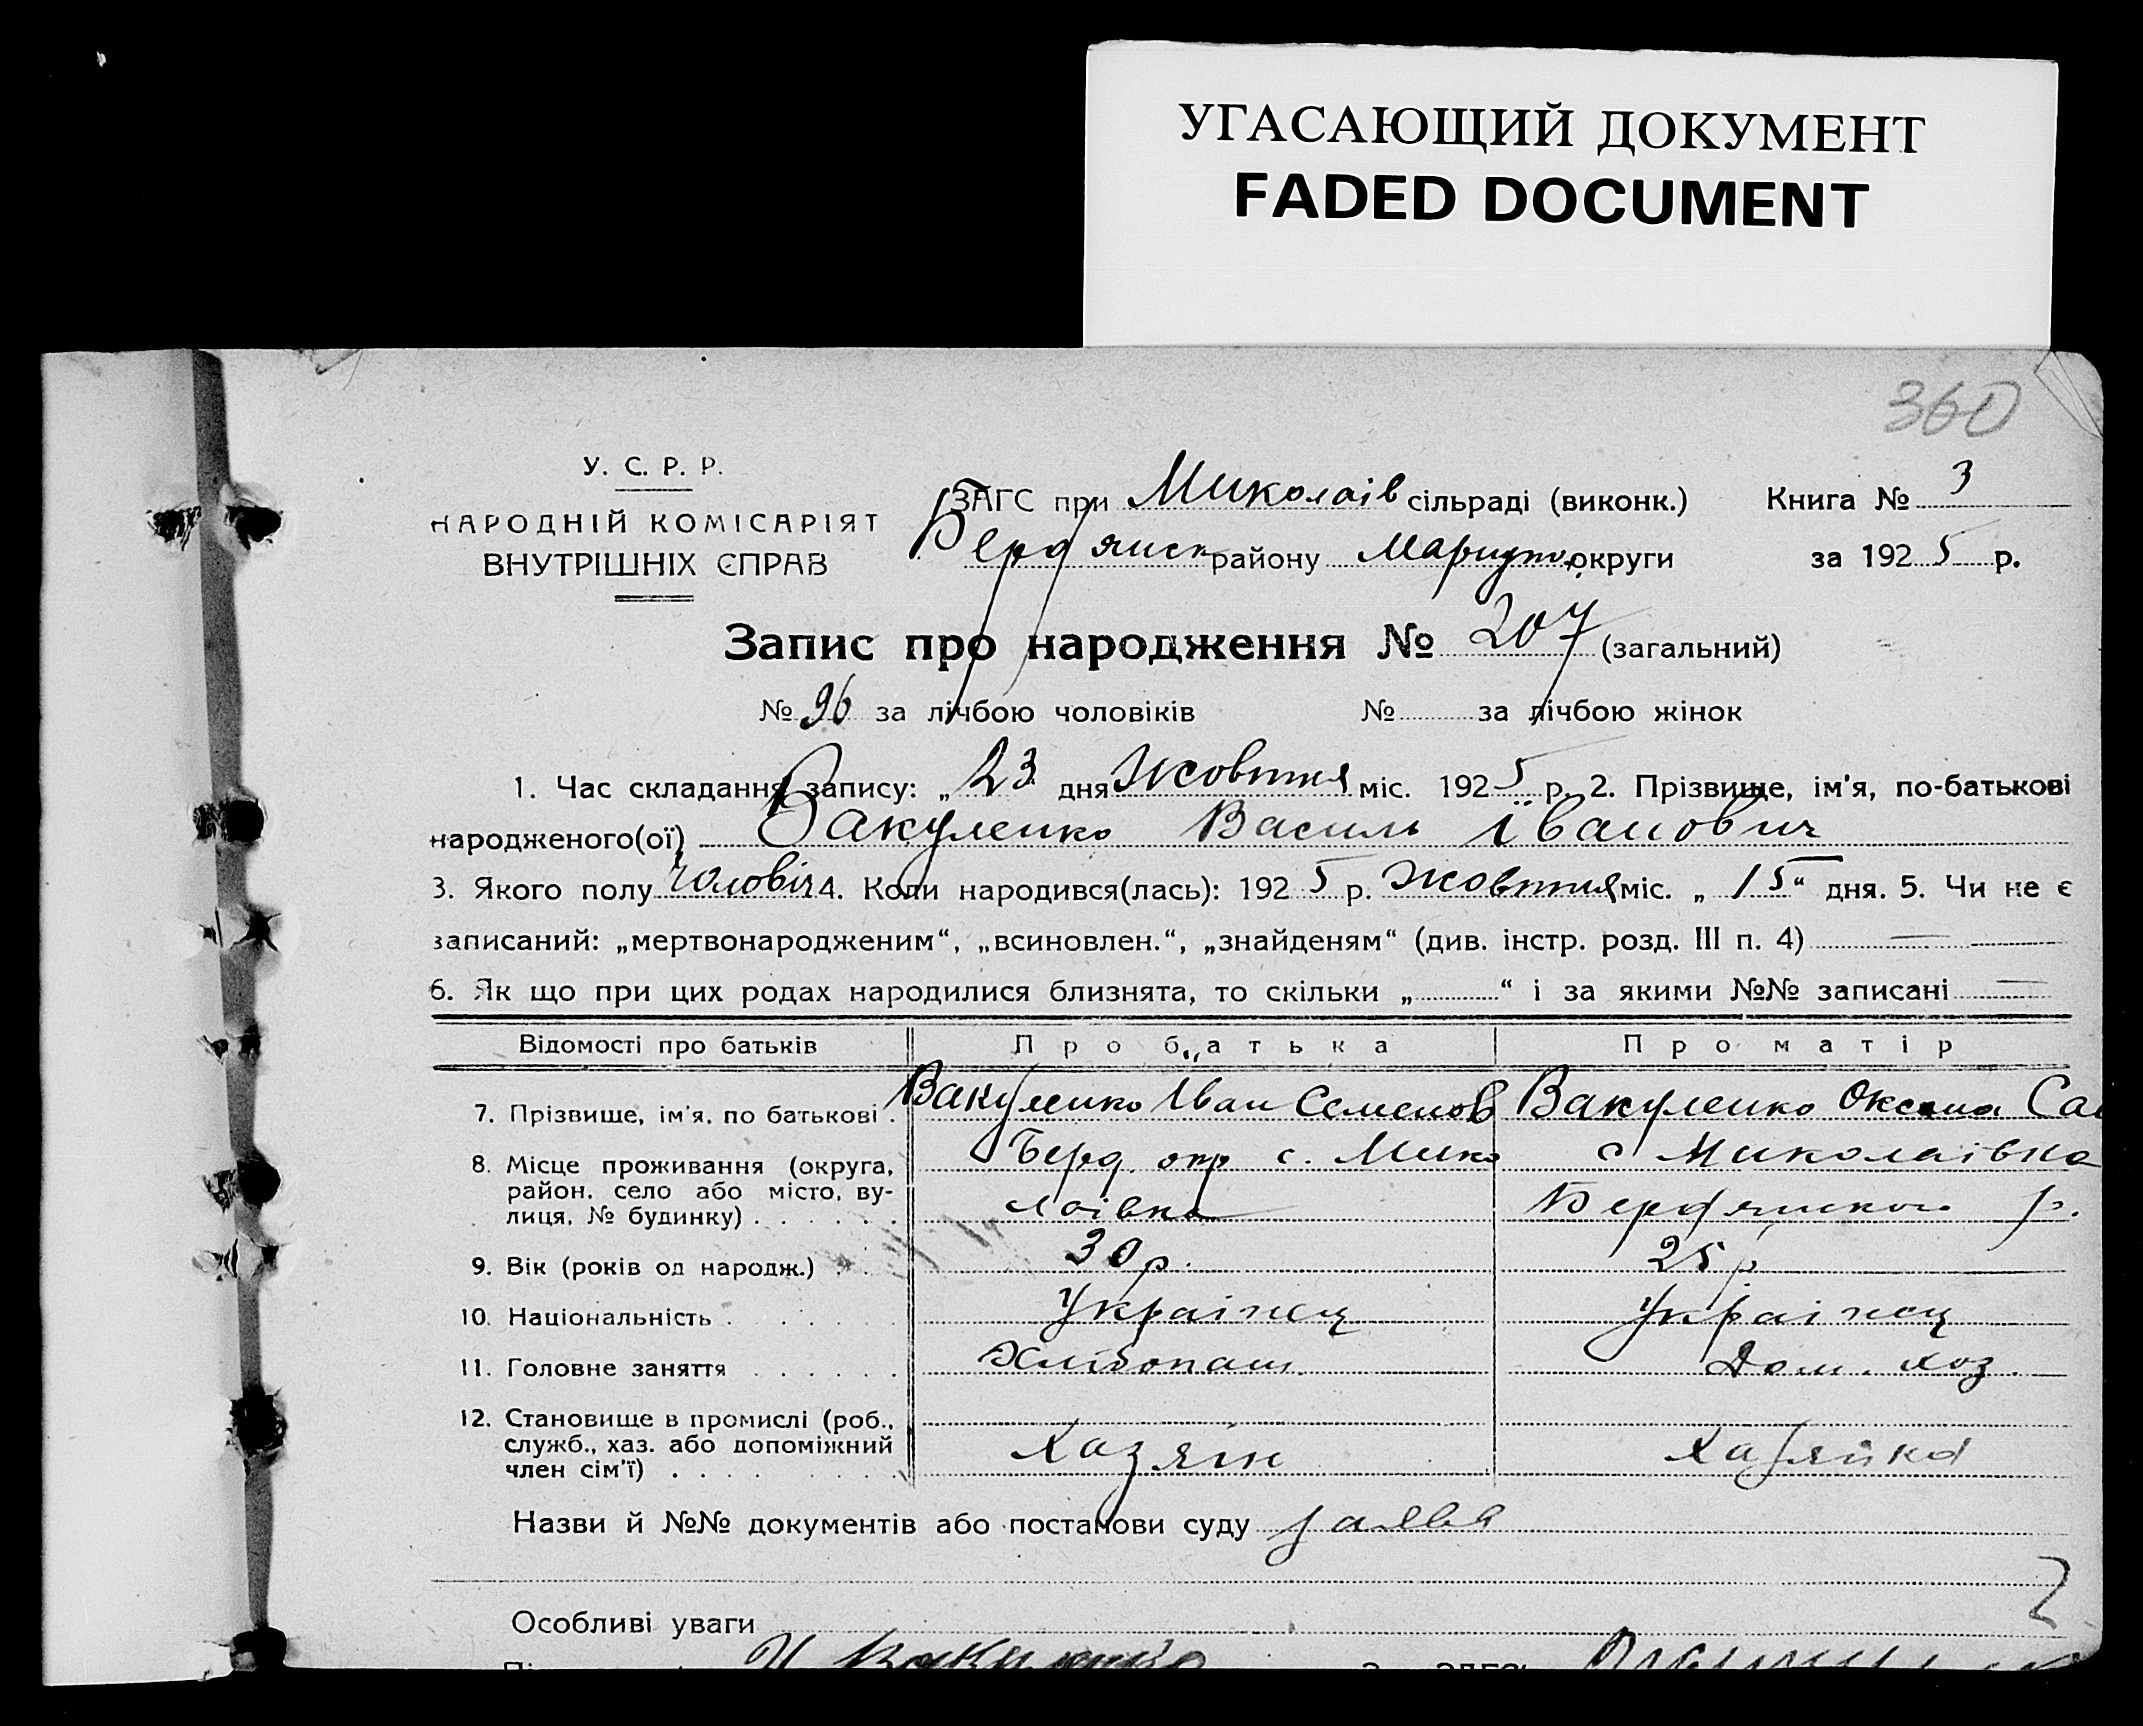 УГАСАЮЩИЙ ДОКУМЕНТ
FADED DOCUMENT
360
У. С. Р. Р.
НАРОДНІЙ КОМІСАРІЯТ
ВНУТРІШНІХ СПРАВ
ЗАГС при Миколаів сільраді (виконк.) Книга № 3
Бердянск району Маріуп. округи за 1925 р.
Запис про народження № 207 (загальний)
№ 96 за лічбою чоловіків № за лічбою жінок
1. Час складання запису: „23 дня Жовтня міс. 1925 р. 2. Прізвище, ім'я, по-батькові
народженого(ої) Вакуленко Василь Іванович
3. Якого полу чоловіч 4. Коли народився(лась): 1925 р. Жовтня міс. „15“ дня. 5. Чи не є
записаний: „мертвонародженим“, „всиновлен.“, „знайденям“ (див. інстр. розд. III п. 4) —
6. Як що при цих родах народилися близнята, то скільки „ “ і за якими №№ записані —
Відомості про батьків Про батька Про матір
7. Прізвище, ім'я, по батькові . Вакуленко Іван Семенов Вакуленко Оксана Са
8. Місце проживання (округа, Берд. с. Мико с Миколаівка
район, село або місто, ву-
лиця, № будинку) . . . . . . лаівка Бердянского р.
9. Вік (років од народж.) . . 30 р. 25 р
10. Національність . . . . . Українец Українец
11. Головне заняття . . . . . . Хлібопаш. Дом. хоз.
12. Становище в промислі (роб.,
служб., хаз. або допоміжний
член сім'ї) . . . . . . . . Хазяін Хазяйка
Назви й №№ документів або постанови суду заява
Особливі уваги